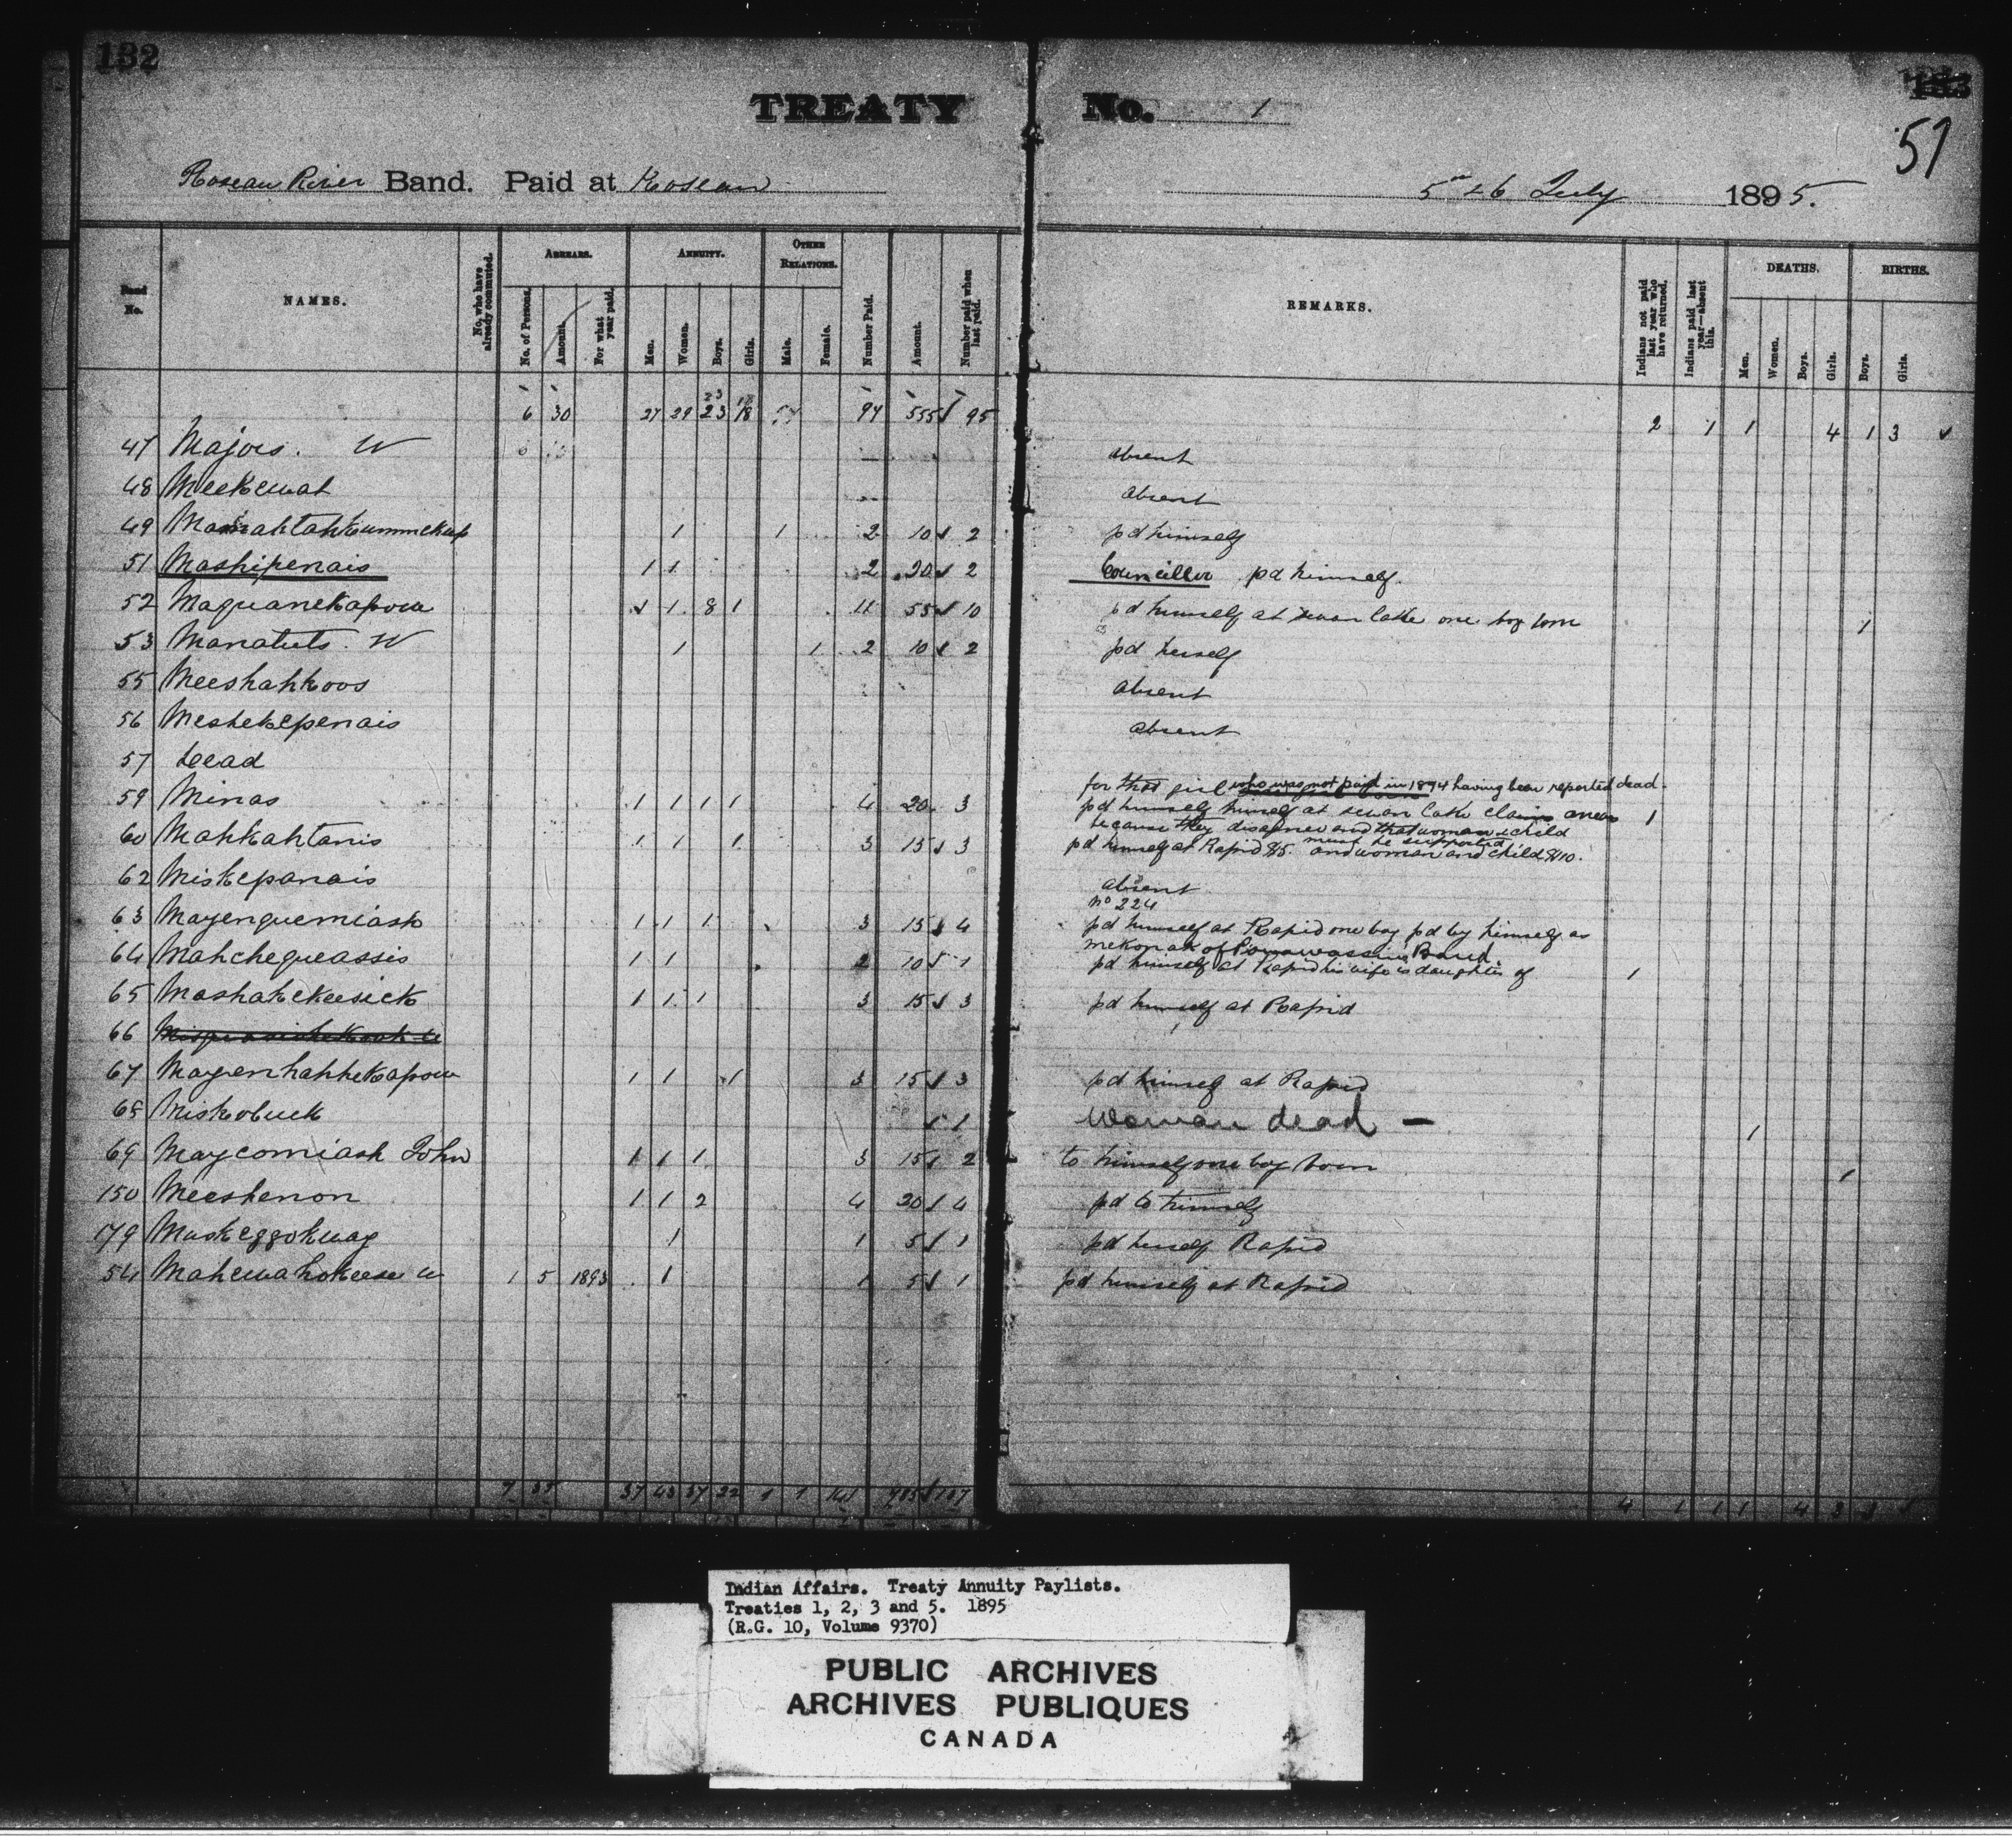 132
TREATY No. 1
51
Roseau River Band. Paid at Roseau 5th & 6 July 1895.
Band No. NAMES. No. who have already commuted. ARREARS. No. of Persons. Amount. For what year paid. ANNUITY. Men. Women. Boys. Girls. OTHER RELATIONS. Male. Female. Number Paid. Amount. Number paid when last paid. REMARKS. Indians not paid last year who have returned. Indians paid last year—absent this. DEATHS. Men. Women. Boys. Girls. BIRTHS. Boys. Girls.
6 30 27 29 23 18 94 555 95 2 1 1 4 1 3
47 Majors. W absent
48 Meekewat absent
49 1 1 2 10 2 pd himself
51 Mashipenais 1 1 2 20 2 Councillor pd himself.
52 Maquanekapow 1 1 8 1 11 55 10 pd himself at swan lake one boy born 1
53 Manatuts. W 1 1 2 10 2 pd herself
55 Meeshahkoos absent
56 Meshekepenais absent
57 Dead
for that girl who was not paid in 1894 having been reported dead.
59 Minas 1 1 1 1 4 20 3 pd himself himself at swan lake claims arrears 1
because they disagree and that woman & child
must be supported
60 Mahkahtanis 1 1 1 3 15 3 pd himself at Rapid $5. and woman and child $10.
62 Miskepanais absent
No 224
63 Mayenguemiash 1 1 1 3 15 4 pd himself at Rapid one boy pd by himself as
mekonak of Band
64 Mahchequeassis 1 1 2 10 1 pd himself at Rapid his wife is daughter of 1
65 Mashahkeesick 1 1 1 3 15 3 pd himself at Rapid
66
67 Mayenhahhekapow 1 1 1 3 15 3 pd himself at Rapid
68 Miskobuck 1 Woman dead - 1
69 Maycomiash John 1 1 1 3 15 2 to himself one boy born 1
150 Meeshenon 1 1 2 4 20 4 pd to himself
179 Muskeggokway 1 1 5 1 pd herself Rapid
54 Mahewahokeese W 1 5 1893 1 1 5 1 pd himself at Rapid
7 35 37 43 37 22 1 1 141 785 137 4 1 1 1 4 3 3
Indian Affairs. Treaty Annuity Paylists.
Treaties 1, 2, 3 and 5. 1895
(R.G. 10, Volume 9370)
PUBLIC ARCHIVES
ARCHIVES PUBLIQUES
CANADA